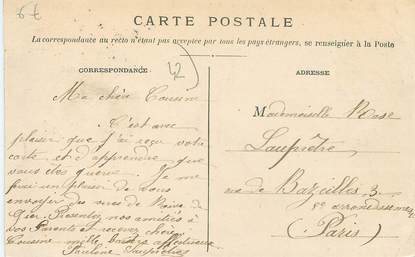 6€
CARTE POSTALE
La correspondance au recto n'étant pas acceptée par tous les pays étrangers, se renseigner à la Poste
42
CORRESPONDANCE
Ma chère Cousine
C'est avec
plaisir que j'ai reçu votre
carte, et d'apprendre que
vous êtes guérie. Je me
ferai un plaisir de vous
envoyer des vues de Rive de
Gier. Présentez nos amitiés à
vos Parents et recevez chère
Cousine mille baisers affectueux
Pauline
ADRESSE
Mademoiselle Rose
Lauprêtre
rue de Bazeilles 3
5e arrondissement
(Paris)